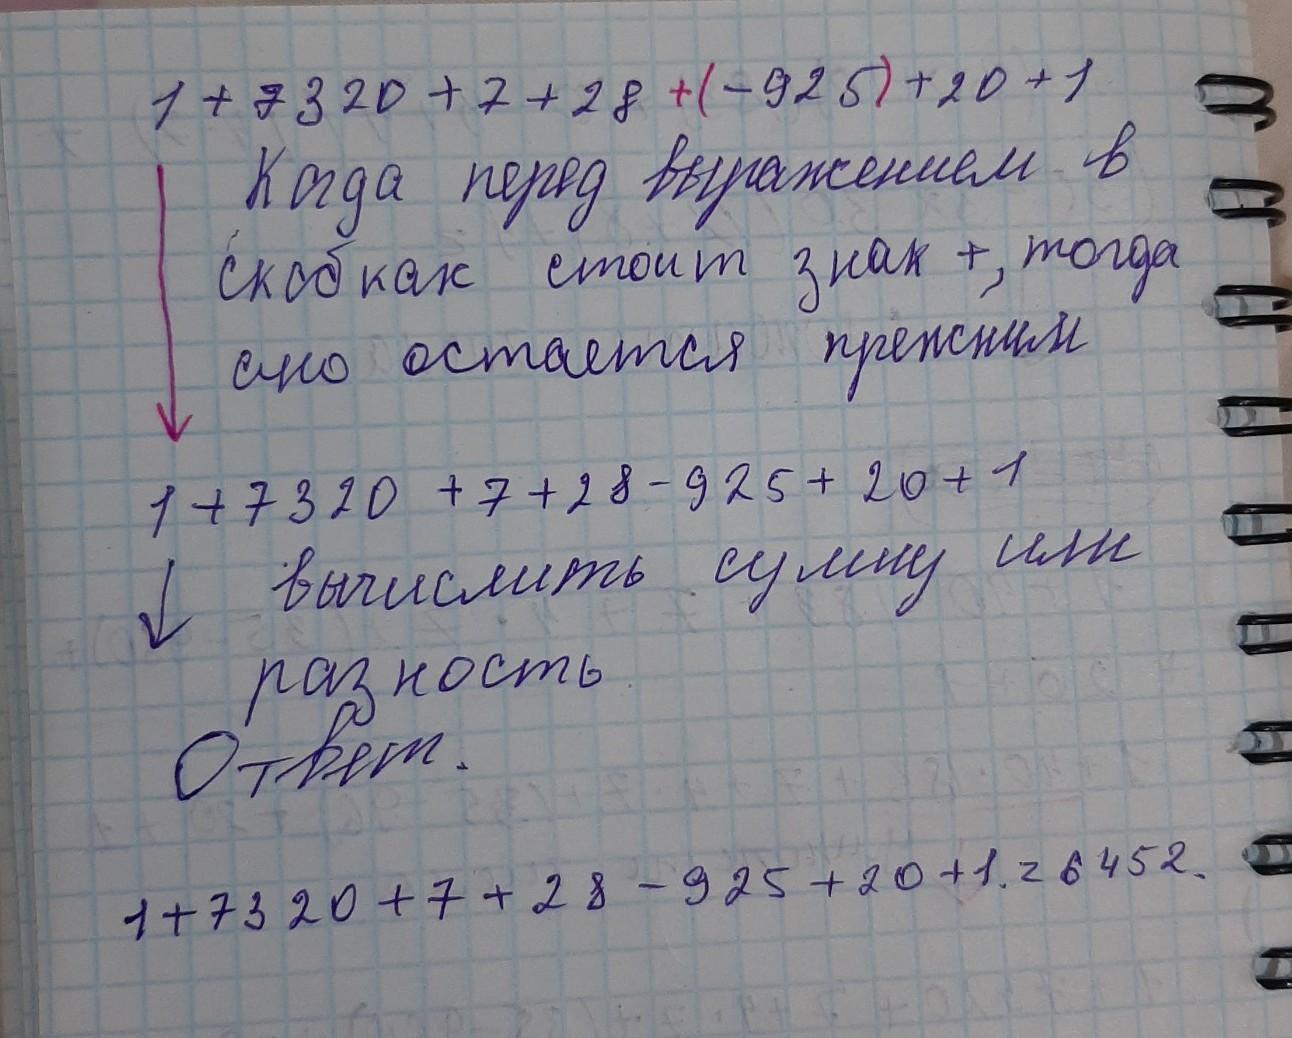 1 + 7320 + 7 + 28 + (-925) + 20 + 1
Когда перед выражением в
скобках стоит знак +, тогда
оно остается прежним
1 + 7320 + 7 + 28 - 925 + 20 + 1
вычислить сумму или
разность
Ответ.
1 + 7320 + 7 + 28 - 925 + 20 + 1. = 6452.